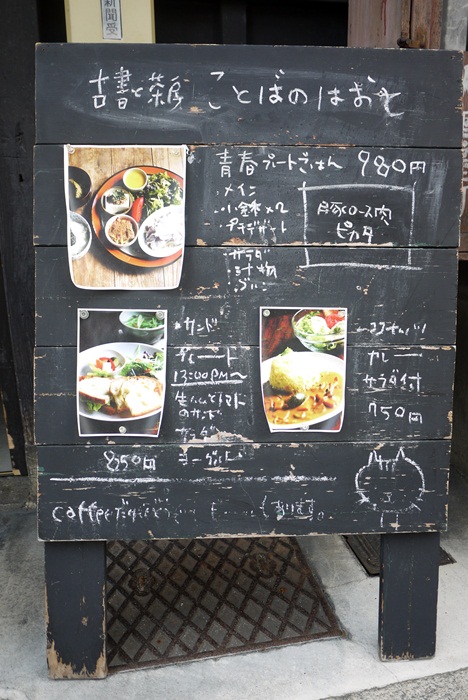 新聞受
古書と茶房 ことばのはおと
青春プレートごはん 980円
・メイン
・小鉢×2
・プチデザート
・サラダ
・汁物
・ゴハン
豚ロース肉
ピカタ
・サンド
プレート
12:00PM〜
生ハムとトマト
のサンド
サラダ
ヨーグルト
850円
カレー
サラダ付
750円
coffee
あります。